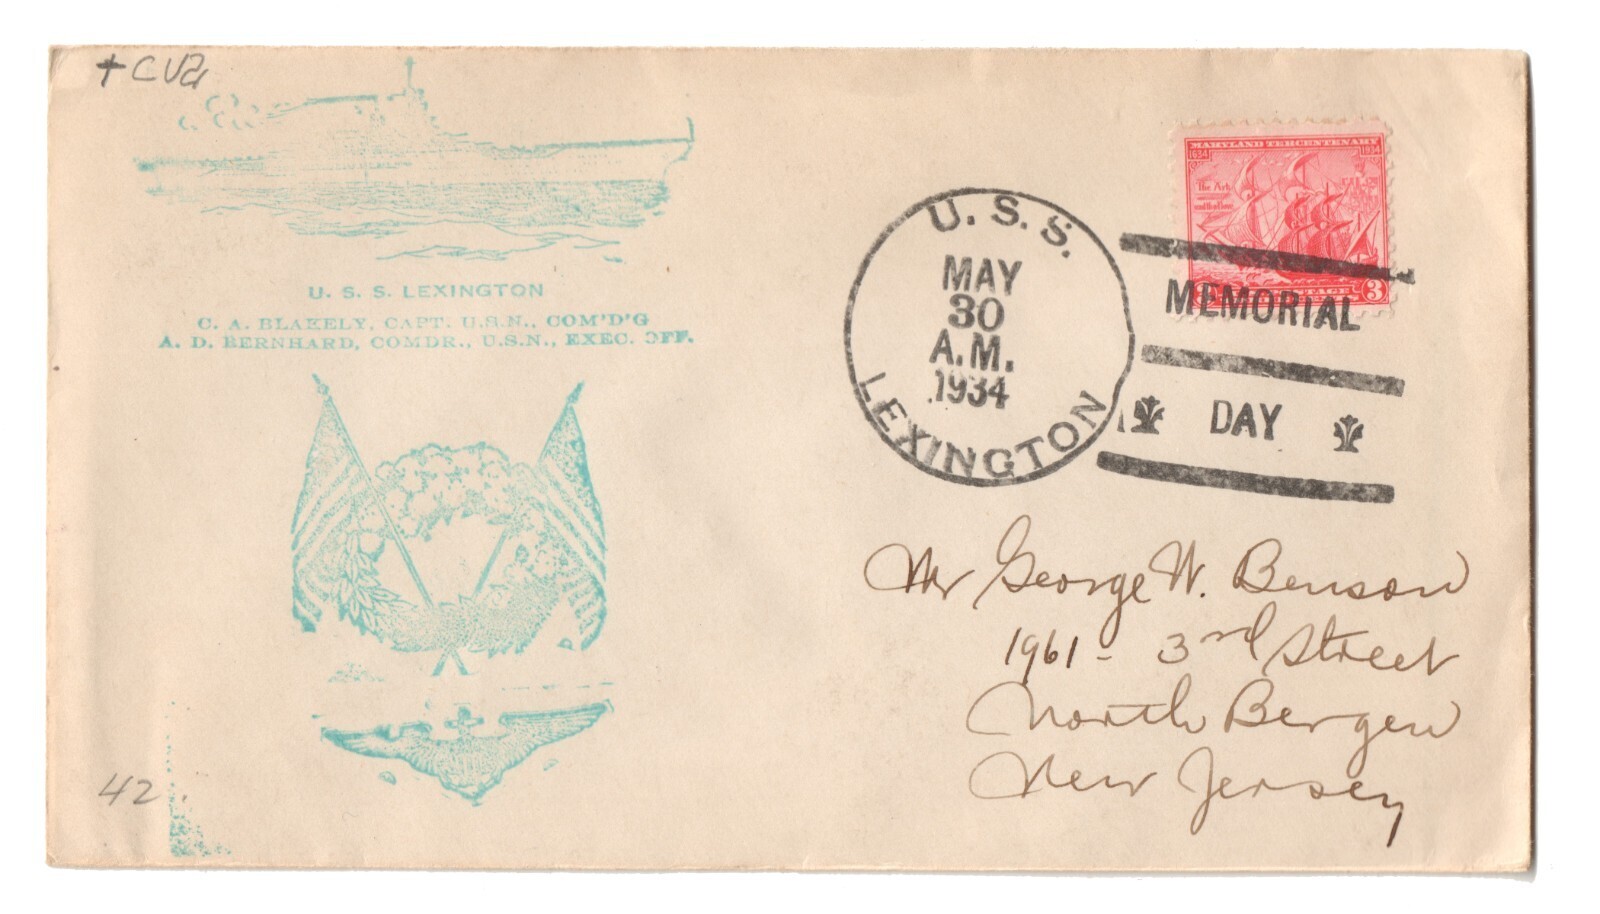 + CV2
U. S. S. LEXINGTON
C. A. BLAKELY, CAPT. U.S.N., COM'D'G
A. D. BERNHARD, COMDR., U.S.N., EXEC. OFF.
42
U. S. S.
MAY
30
A.M.
1934
LEXINGTON
MARYLAND TERCENTENARY
1634 1934
The Ark
and the Dove
3
MEMORIAL
DAY
Mr George W. Benson
1961 - 3rd Street
North Bergen
New Jersey